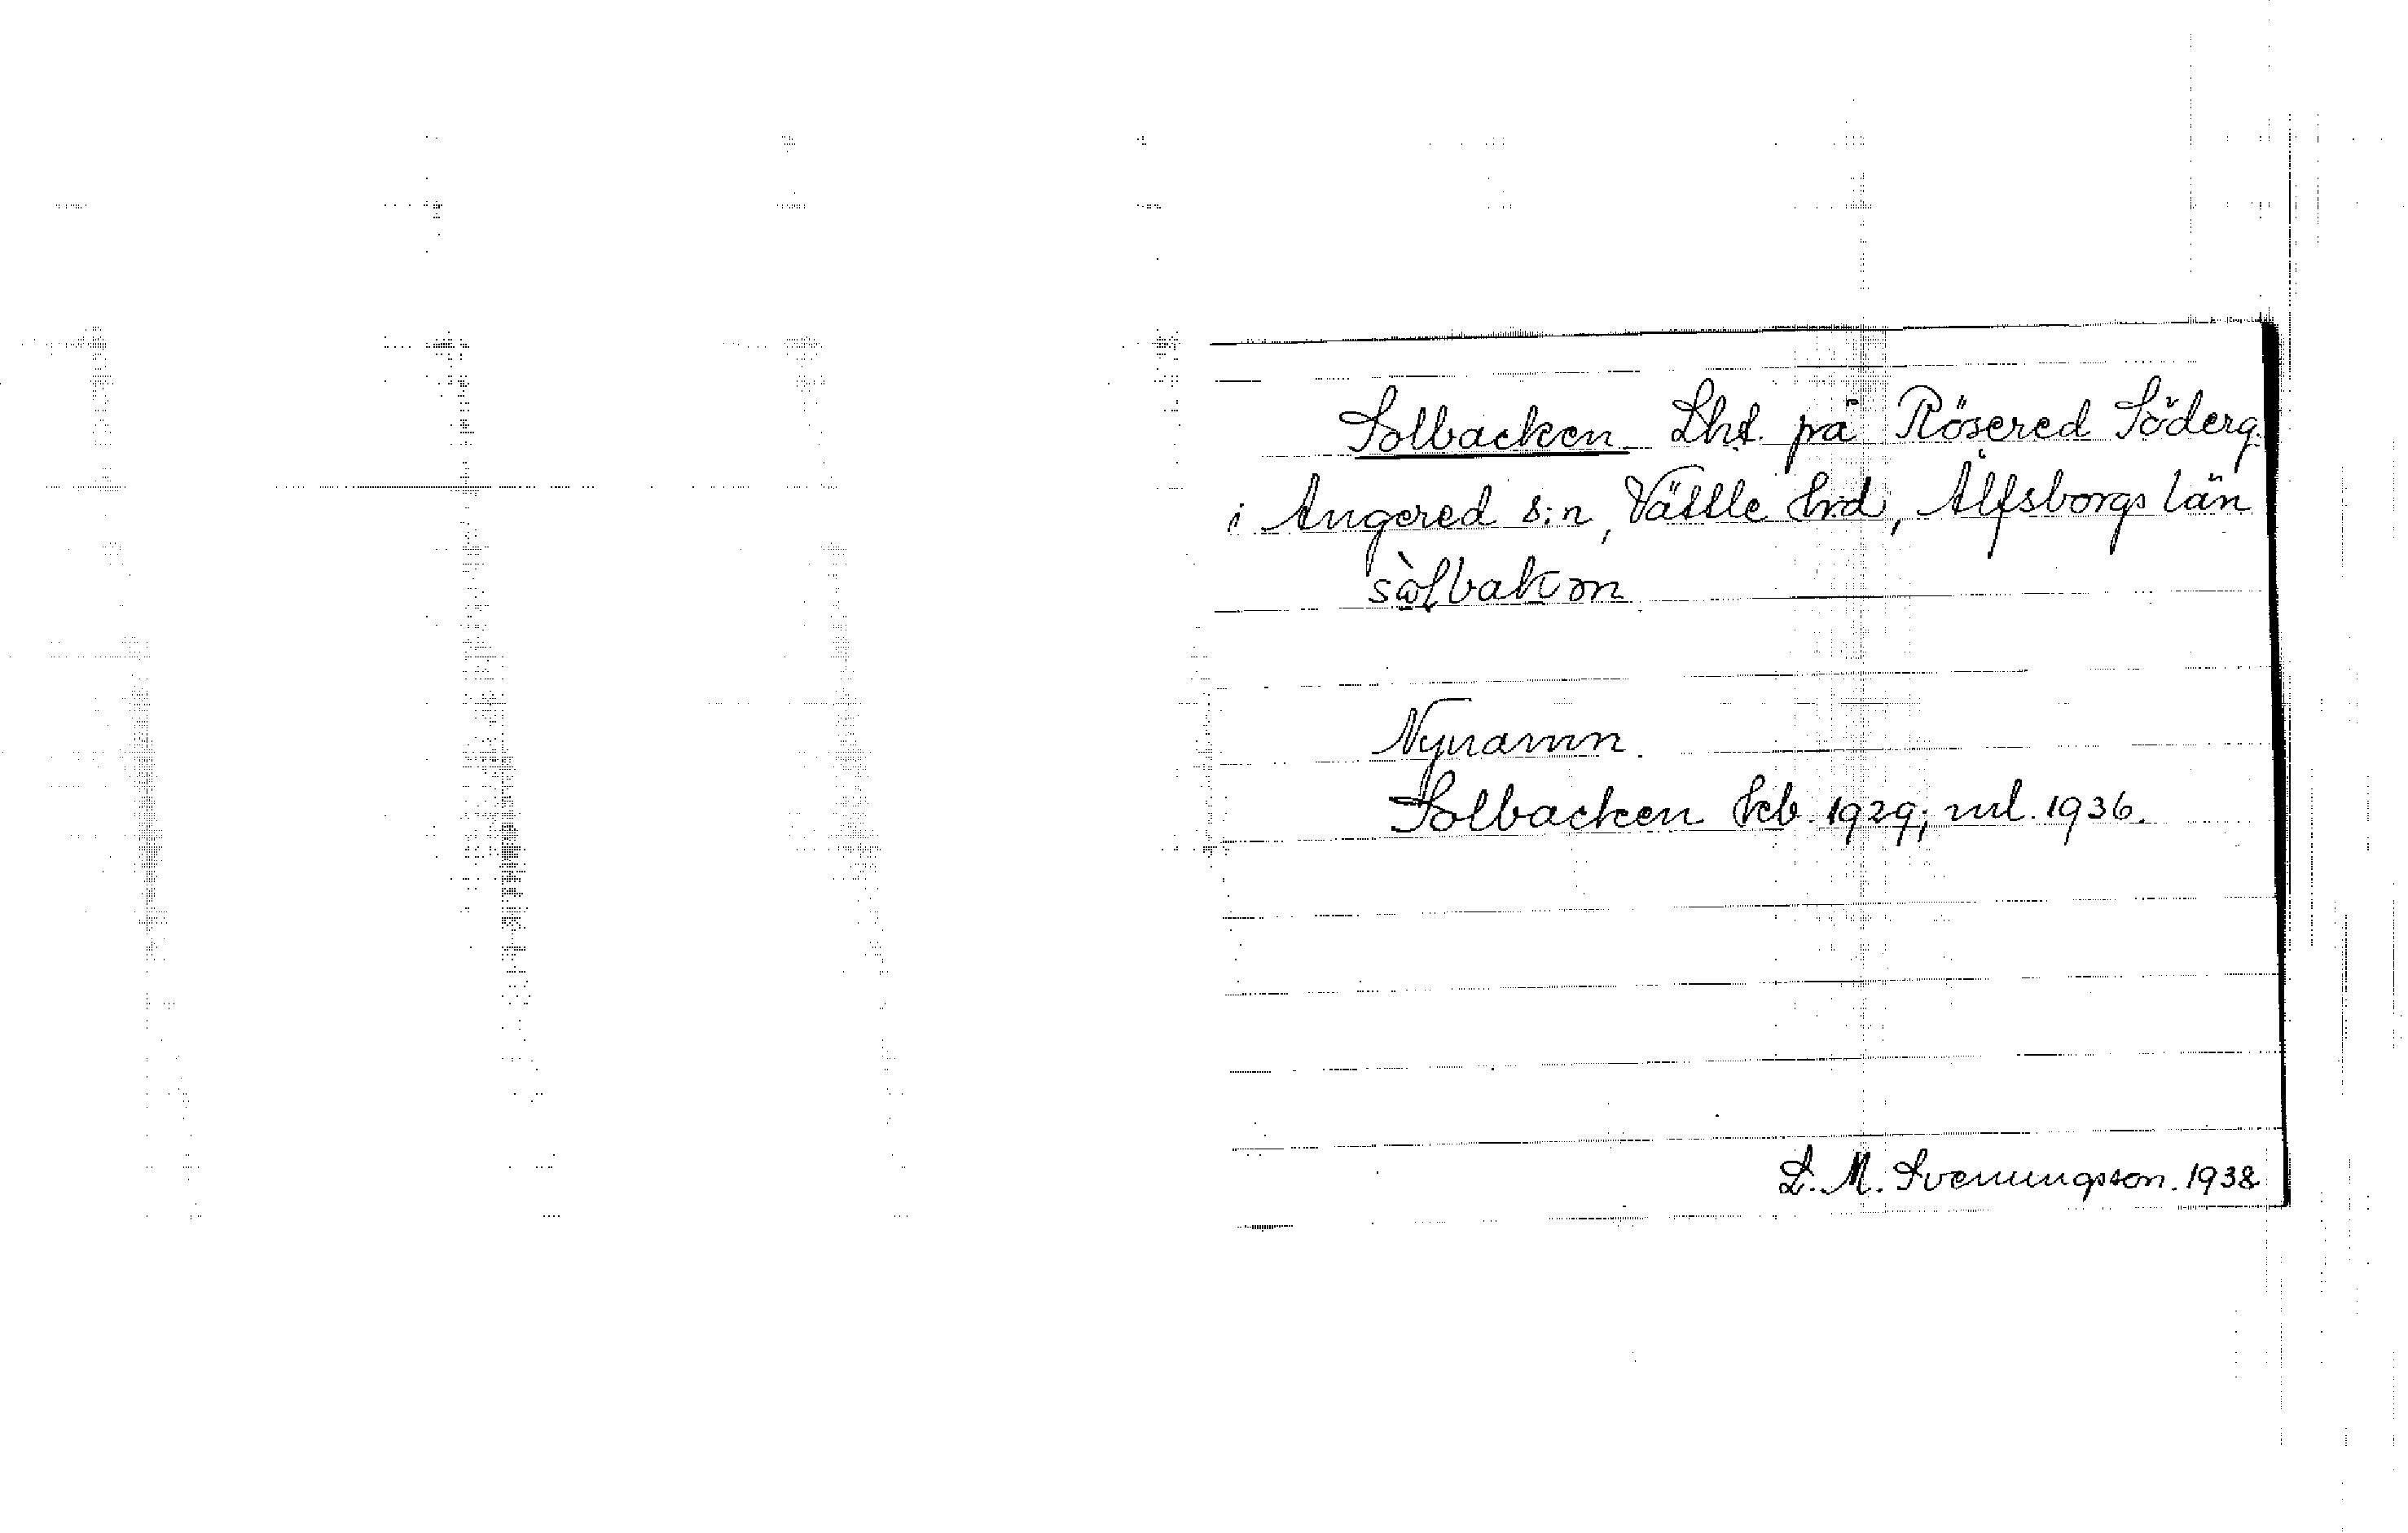 Solbacken Lht. på Rösered Söderg.
i Angered s:n, Vättle hrd, Älfsborgs län
Nynamn.
Solbacken kb. 1929; ml. 1936.
L. M. Svenungsson. 1938